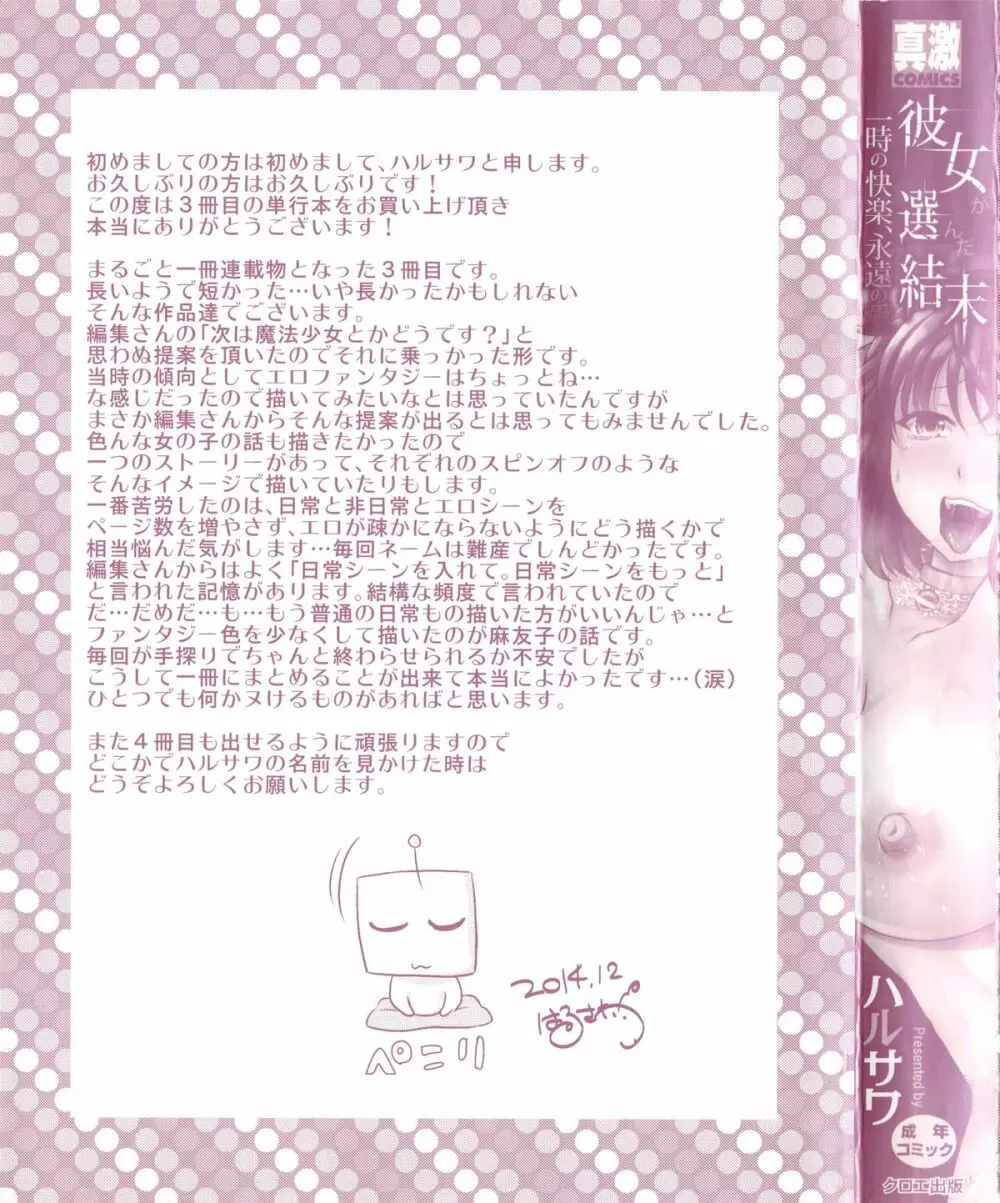 初めましての方は初めまして、ハルサワと申します。
お久しぶりの方はお久しぶりです！
この度は３冊目の単行本をお買い上げ頂き
本当にありがとうございます！
まるごと一冊連載物となった３冊目です。
長いようで短かった…いや長かったかもしれない
そんな作品達でございます。
編集さんの「次は魔法少女とかどうです？」と
思わぬ提案を頂いたのでそれに乗っかった形です。
当時の傾向としてエロファンタジーはちょっとね…
な感じだったので描いてみたいなとは思っていたんですが
まさか編集さんからそんな提案が出るとは思ってもみませんでした。
色んな女の子の話も描きたかったので
一つのストーリーがあって、それぞれのスピンオフのような
そんなイメージで描いていたりもします。
一番苦労したのは、日常と非日常とエロシーンを
ページ数を増やさず、エロが疎かにならないようにどう描くかで
相当悩んだ気がします…毎回ネームは難産でしんどかったです。
編集さんからはよく「日常シーンを入れて。日常シーンをもっと」
と言われた記憶があります。結構な頻度で言われていたので
だ…だめだ…も…もう普通の日常もの描いた方がいいんじゃ…と
ファンタジー色を少なくして描いたのが麻友子の話です。
毎回が手探りでちゃんと終わらせられるか不安でしたが
こうして一冊にまとめることが出来て本当によかったです…（涙）
ひとつでも何かヌけるものがあればと思います。
また４冊目も出せるように頑張りますので
どこかでハルサワの名前を見かけた時は
どうぞよろしくお願いします。
ペコリ
2014.12
はるさわ
真激
COMICS
彼女が選んだ結末
一時の快楽、永遠の
ハルサワ
Presented by
成年
コミック
クロエ出版